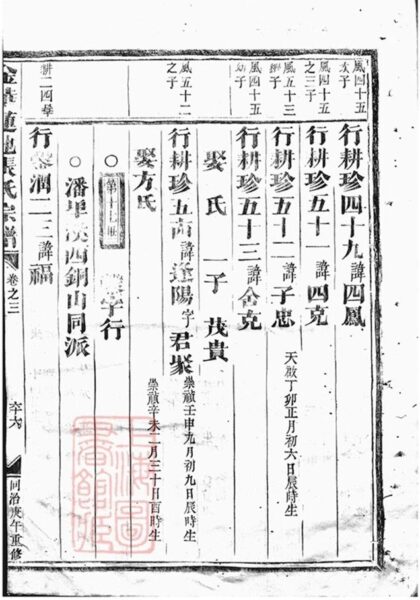 風四十五
次子
行耕珍四十九諱四鳳
風四十五
之三子
行耕珍五十一諱四克
風五十三
行耕珍五十二諱子忠
天啟丁卯正月初六日辰時生
風四十五
行耕珍五十三諱金克
娶 氏 一子 茂貴
風五十二
之子
行耕珍五十 諱逢陽字君聚
崇禎壬申九月初九日辰時生
娶方氏
崇禎辛未二月三十日酉時生
第十七世
字行
潘 溪四銅山同派
耕二四
行 潤二三諱福
金華 池張氏宗譜
卷之三
六十六
同治庚午重修
上海圖書館